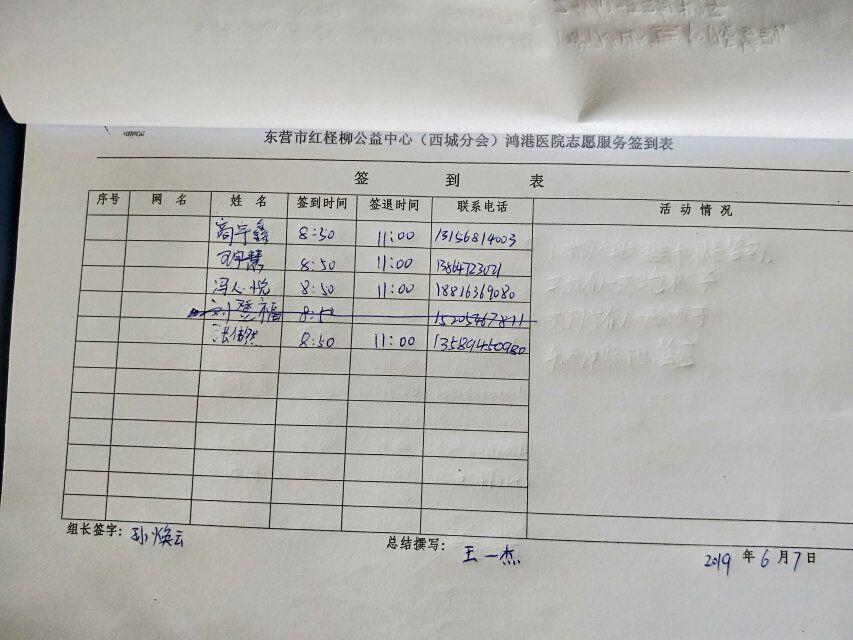 东营市红柽柳公益中心（西城分会）鸿港医院志愿服务签到表
签 到 表
序号 网 名 姓 名 签到时间 签退时间 联系电话 活 动 情 况
高宇鑫 8:50 11:00 13156814003
8:50 11:00 13864723021
冯人悦 8:50 11:00 18816369080
刘登福 8:50
张倩然 8:50 11:00 13589450980
组长签字：孙焕云 总结撰写：王一杰 2019 年 6 月 7 日